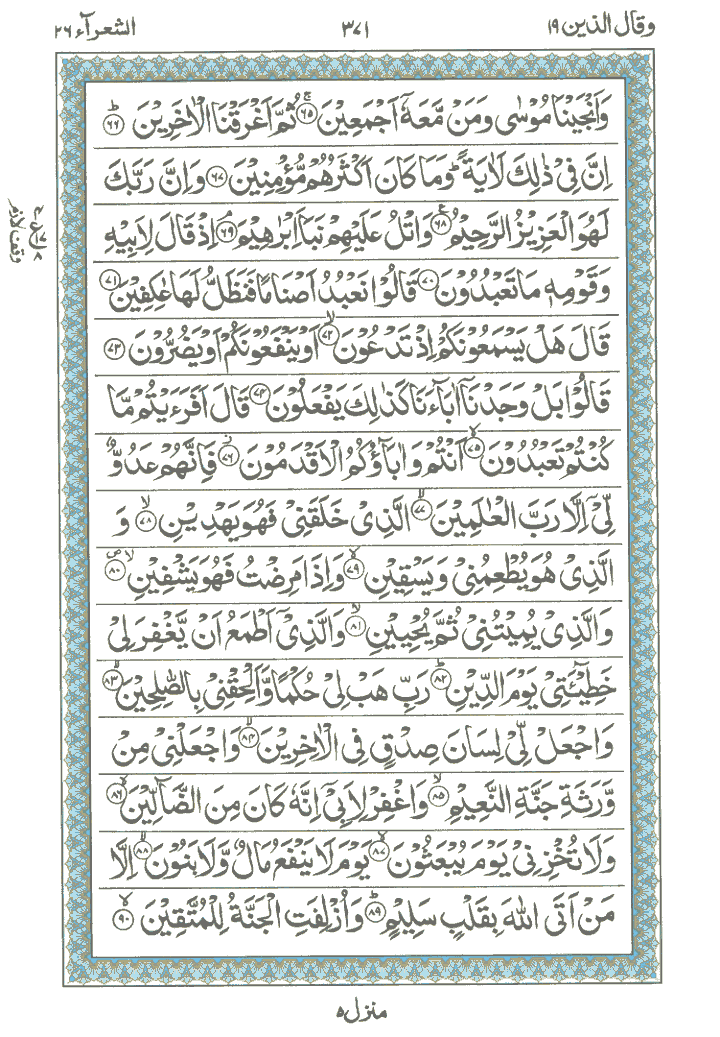 وقال الذين ۱۹
۳۷۱
الشعرآء ۲۶
وَاَنْجَيْنَا مُوْسٰى وَمَنْ مَّعَهٗٓ اَجْمَعِيْنَ ۚ‏﴿۶۵﴾ ثُمَّ اَغْرَقْنَا الْاٰخَرِيْنَ ؕ‏﴿۶۶﴾
اِنَّ فِىْ ذٰلِكَ لَاٰيَةً ؕ وَمَا كَانَ اَكْثَرُهُمْ مُّؤْمِنِيْنَ ﴿۶۷﴾ وَاِنَّ رَبَّكَ
لَهُوَ الْعَزِيْزُ الرَّحِيْمُ ﴿۶۸﴾ وَاتْلُ عَلَيْهِمْ نَبَاَ اِبْرٰهِيْمَ ۘ‏﴿۶۹﴾ اِذْ قَالَ لِاَبِيْهِ
وَقَوْمِهٖ مَا تَعْبُدُوْنَ ﴿۷۰﴾ قَالُوْا نَعْبُدُ اَصْنَامًا فَنَظَلُّ لَهَا عٰكِفِيْنَ ﴿۷۱﴾
قَالَ هَلْ يَسْمَعُوْنَكُمْ اِذْ تَدْعُوْنَ ۙ‏﴿۷۲﴾ اَوْ يَنْفَعُوْنَكُمْ اَوْ يَضُرُّوْنَ ﴿۷۳﴾
قَالُوْا بَلْ وَجَدْنَآ اٰبَآءَنَا كَذٰلِكَ يَفْعَلُوْنَ ﴿۷۴﴾ قَالَ اَفَرَءَيْتُمْ مَّا
كُنْتُمْ تَعْبُدُوْنَ ۙ‏﴿۷۵﴾ اَنْتُمْ وَاٰبَآؤُكُمُ الْاَقْدَمُوْنَ ۖ‏﴿۷۶﴾ فَاِنَّهُمْ عَدُوٌّ
لِّىْٓ اِلَّا رَبَّ الْعٰلَمِيْنَ ۙ‏﴿۷۷﴾ الَّذِىْ خَلَقَنِىْ فَهُوَ يَهْدِيْنِ ۙ‏﴿۷۸﴾ وَ
الَّذِىْ هُوَ يُطْعِمُنِىْ وَيَسْقِيْنِ ۙ‏﴿۷۹﴾ وَاِذَا مَرِضْتُ فَهُوَ يَشْفِيْنِ ۙ‏﴿۸۰﴾
وَالَّذِىْ يُمِيْتُنِىْ ثُمَّ يُحْيِيْنِ ۙ‏﴿۸۱﴾ وَالَّذِىْٓ اَطْمَعُ اَنْ يَّغْفِرَ لِىْ
خَطِيْٓئَتِىْ يَوْمَ الدِّيْنِ ؕ‏﴿۸۲﴾ رَبِّ هَبْ لِىْ حُكْمًا وَّاَلْحِقْنِىْ بِالصّٰلِحِيْنَ ۙ‏﴿۸۳﴾
وَاجْعَلْ لِّىْ لِسَانَ صِدْقٍ فِى الْاٰخِرِيْنَ ۙ‏﴿۸۴﴾ وَاجْعَلْنِىْ مِنْ
وَّرَثَةِ جَنَّةِ النَّعِيْمِ ۙ‏﴿۸۵﴾ وَاغْفِرْ لِاَبِىْٓ اِنَّهٗ كَانَ مِنَ الضَّآلِّيْنَ ۙ‏﴿۸۶﴾
وَلَا تُخْزِنِىْ يَوْمَ يُبْعَثُوْنَ ۙ‏﴿۸۷﴾ يَوْمَ لَا يَنْفَعُ مَالٌ وَّلَا بَنُوْنَ ۙ‏﴿۸۸﴾ اِلَّا
مَنْ اَتَى اللّٰهَ بِقَلْبٍ سَلِيْمٍ ؕ‏﴿۸۹﴾ وَاُزْلِفَتِ الْجَنَّةُ لِلْمُتَّقِيْنَ ۙ‏﴿۹۰﴾
وقف لازم
منزل ۵